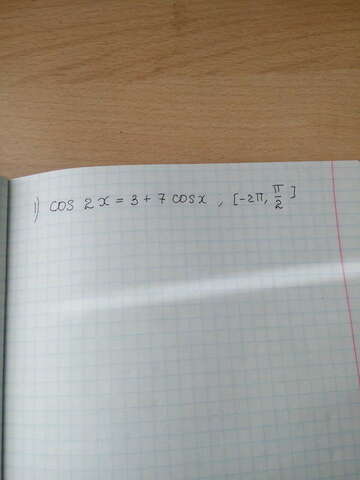 1) cos 2x = 3 + 7 cosx , [-2π, π/2]